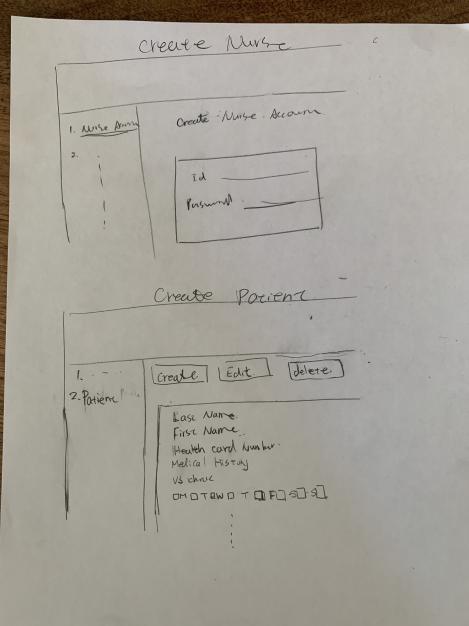 Create Nurse
1. Nurse Accoun
Create Nurse Account
2.
Id
Password
Create Patient
1.
Create Edit delete
2. Patient
Last Name
First Name
Health card Number
Medical History
M T W T F S S